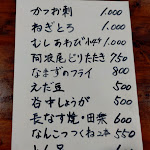 かつお刺 1.000
ねぎとろ 1.000
むしあわび小4ケ 1.000
阿波尾どりたたき 750
なまずのフライ 800
えだ豆 500
谷中しょうが 500
長なす焼・田楽 600
なんこつつくね二本 550